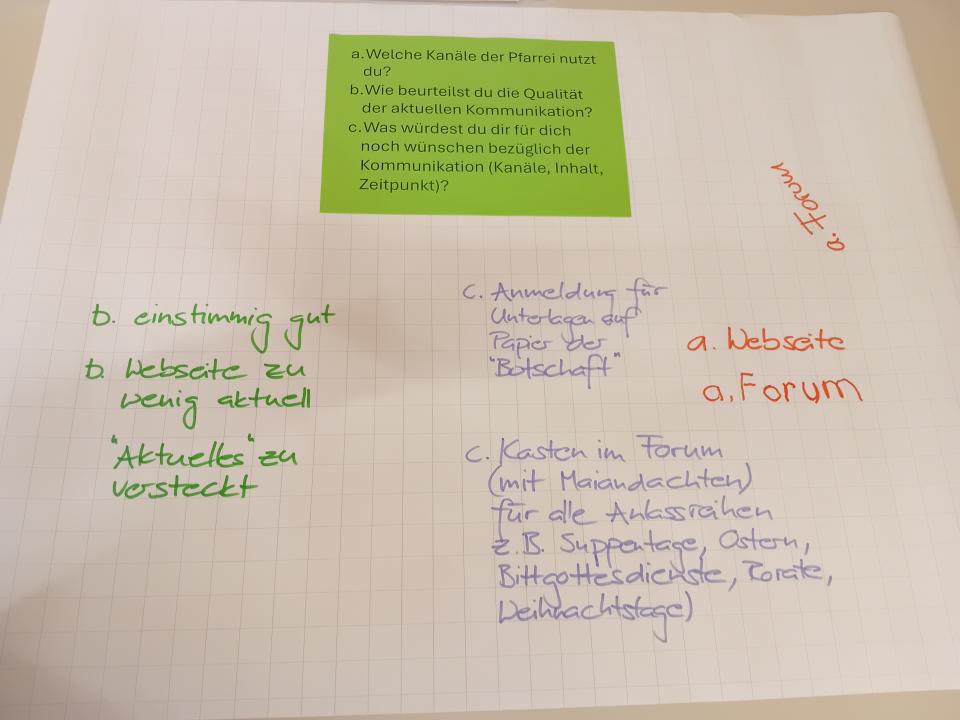 a. Welche Kanäle der Pfarrei nutzt
du?
b. Wie beurteilst du die Qualität
der aktuellen Kommunikation?
c. Was würdest du dir für dich
noch wünschen bezüglich der
Kommunikation (Kanäle, Inhalt,
Zeitpunkt)?
a. Forum
b. einstimmig gut
b. Webseite zu
wenig aktuell
"Aktuelles" zu
versteckt
c. Anmeldung für
Unterlagen auf
Papier der
"Botschaft"
a. Webseite
a. Forum
c. Kasten im Forum
(mit Maiandachten)
für alle Anlassreihen
z.B. Suppentage, Ostern,
Bittgottesdienste, Rorate,
Weihnachtstage)